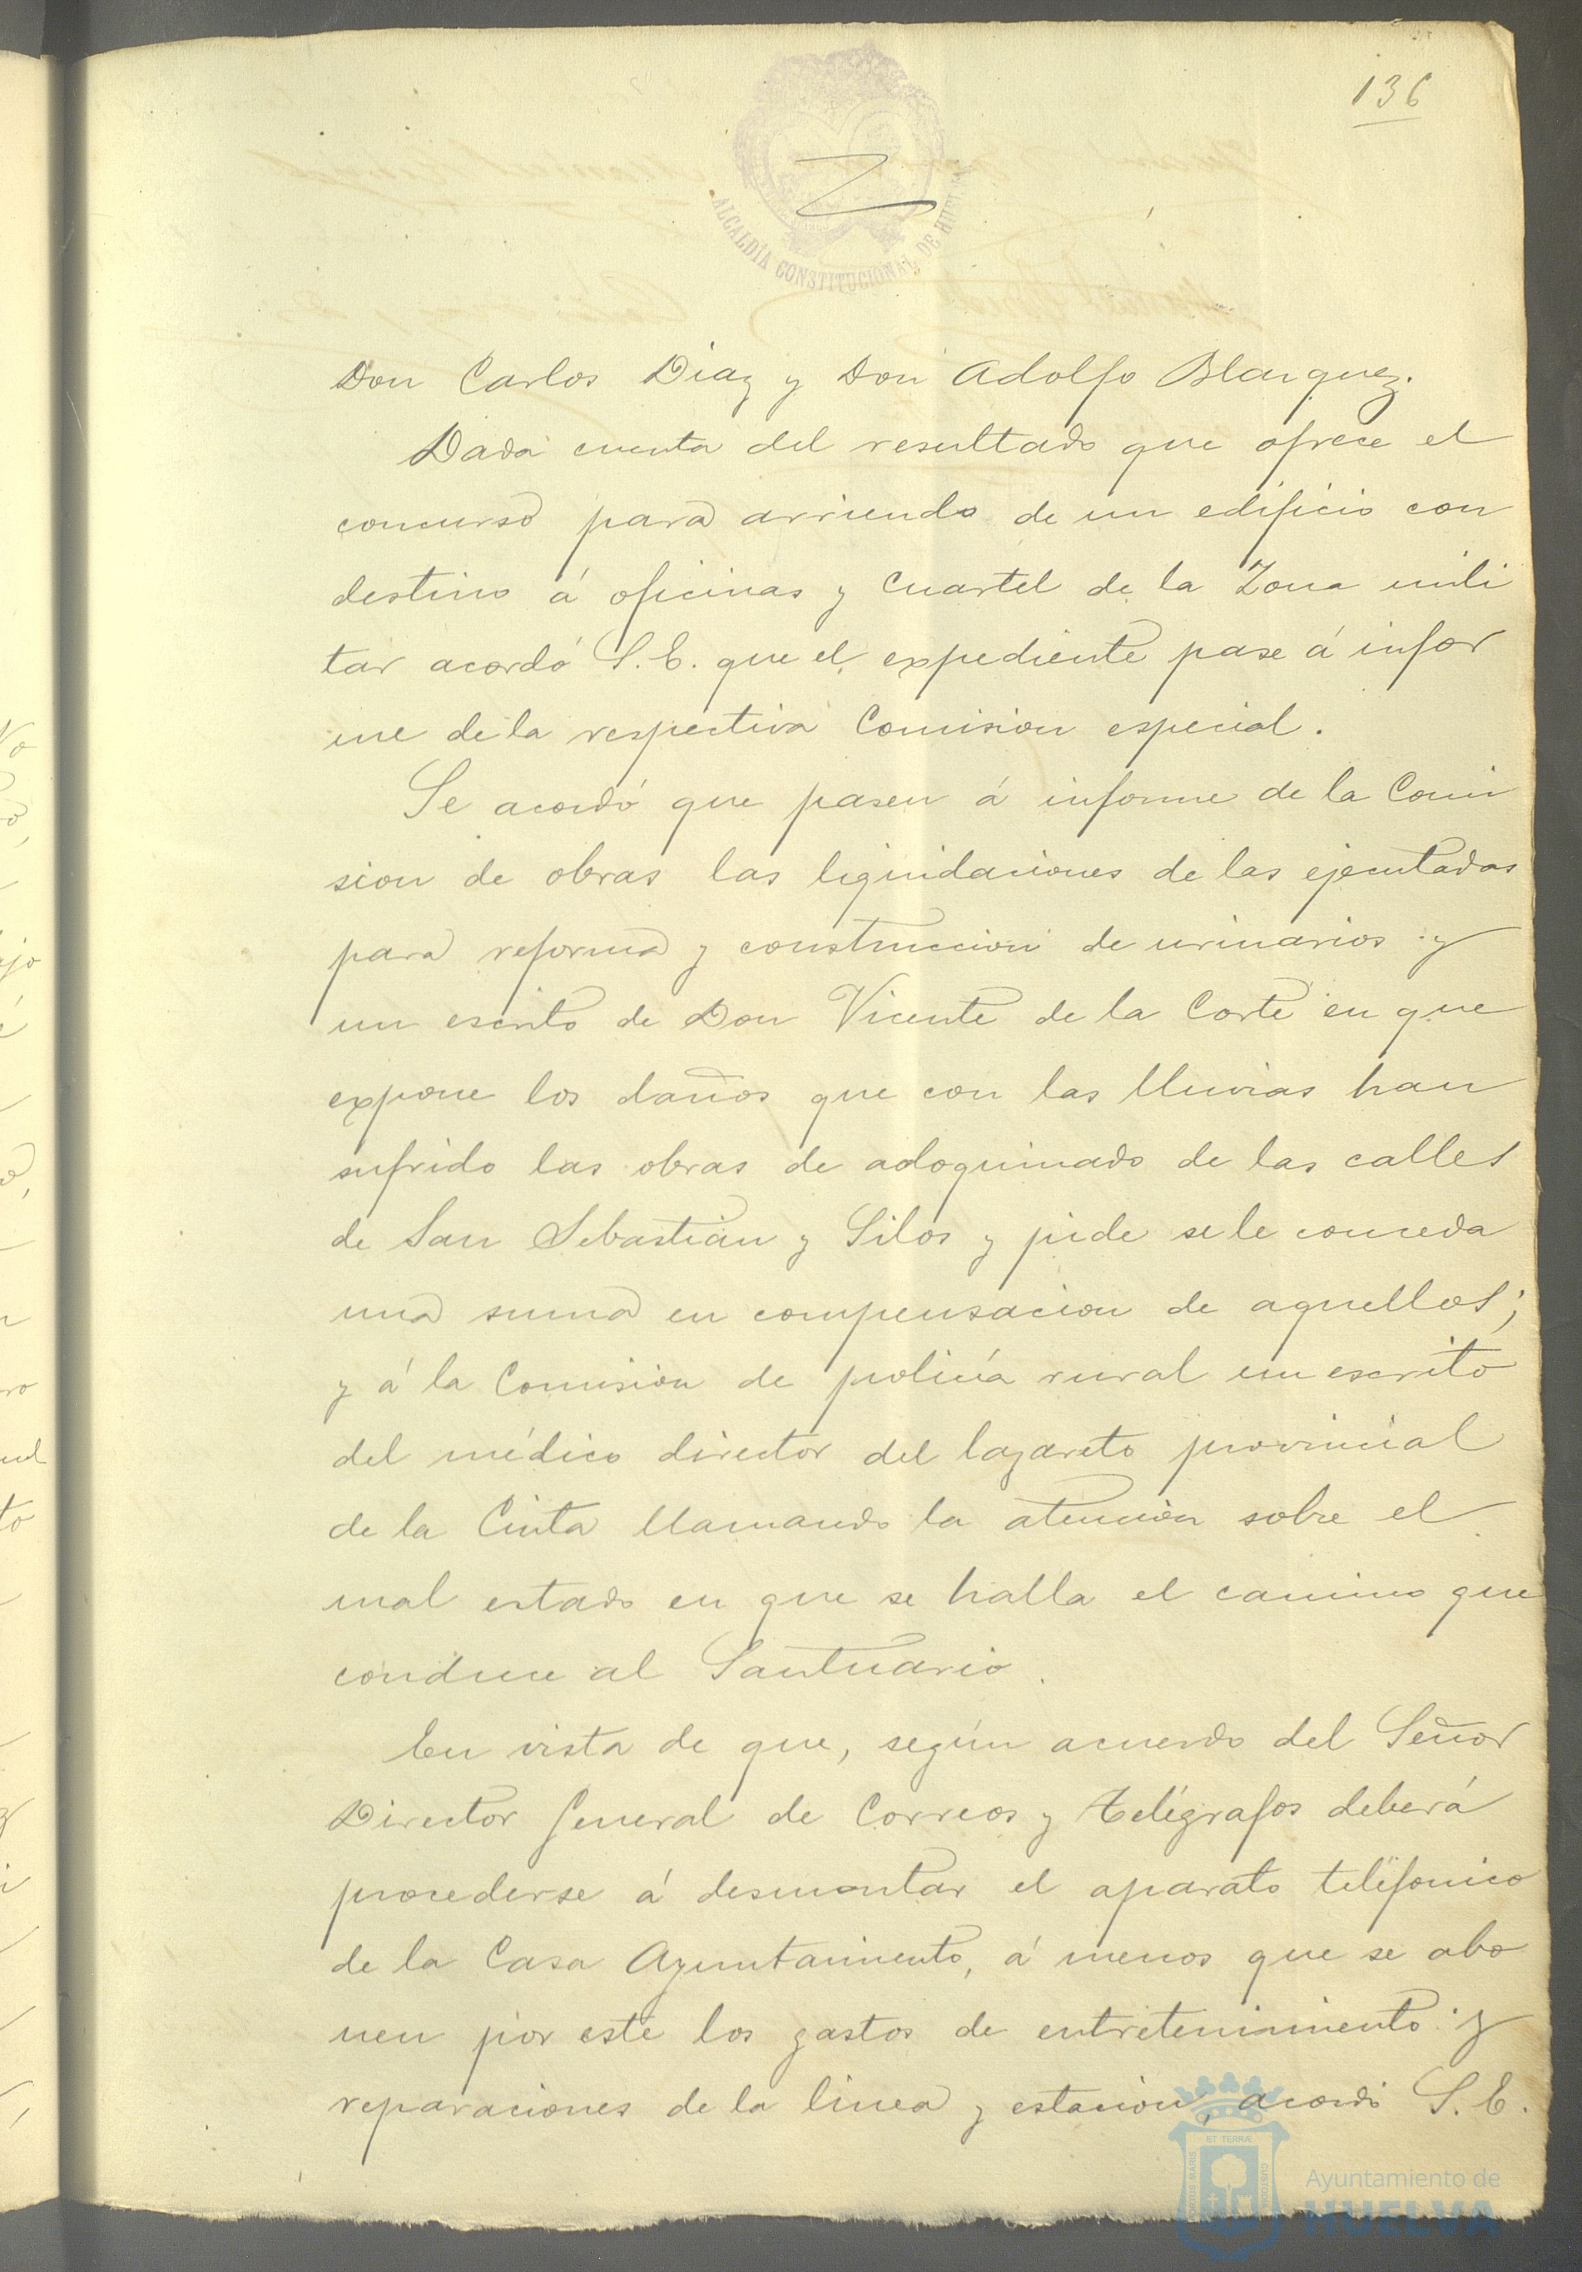 136
ALCALDÍA CONSTITUCIONAL DE HUELVA
Don Carlos Diaz y Don Adolfo Blazquez.
Dada cuenta del resultado que ofrece el
concurso para arriendo de un edificio con
destino á oficinas y Cuartel de la Zona mili
tar acordó S.E. que el expediente pase á infor
me de la respectiva Comision especial.
Se acordó que pasen á informe de la Comi
sion de obras las liquidaciones de las ejecutadas
para reforma y construccion de urinarios y
un escrito de Don Vicente de la Corte en que
expone los daños que con las lluvias han
sufrido las obras de adoquinado de las calles
de San Sebastian y Silos y pide se le conceda
una suma en compensacion de aquellos;
y á la Comision de policía rural un escrito
del médico director del lazareto provincial
de la Cinta llamando la atencion sobre el
mal estado en que se halla el camino que
conduce al Santuario.
En vista de que, según acuerdo del Señor
Director General de Correos y Telégrafos deberá
procederse á desmontar el aparato teléfonico
de la Casa Ayuntamiento, á menos que se abo
nen por este los gastos de entretenimiento y
reparaciones de la linea y estacion, acordó S.E.
PORTUS MARIS ET TERRÆ CUSTODIA
Ayuntamiento de
HUELVA